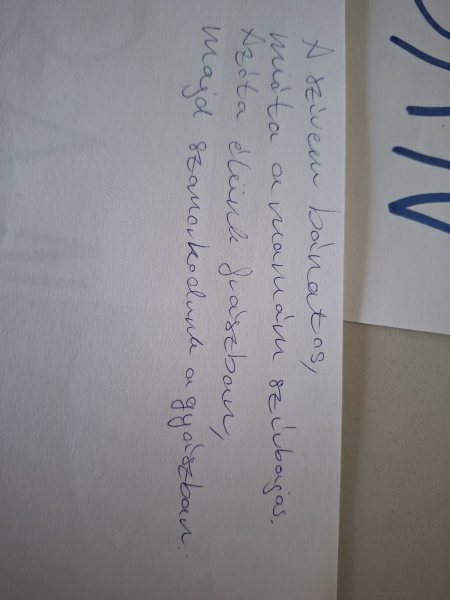 A szívem bánatos,
mióta a mamám szívbajos.
Azóta élünk gyászban,
majd szanakodunk a gyászban.